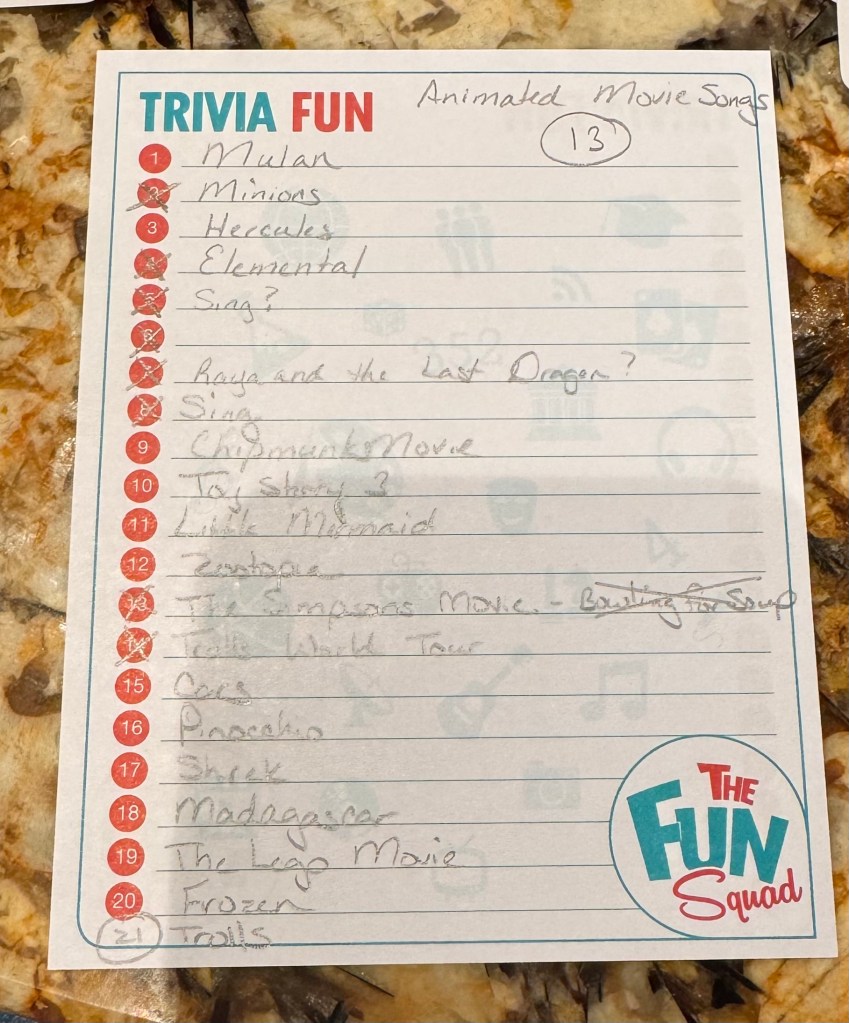 TRIVIA FUN Animated Movie Songs
13
1 Mulan
2 Minions
3 Hercules
4 Elemental
5 Sing?
6
7 Raya and the Last Dragon?
8 Sing
9 Chipmunks Movie
10 Toy Story 3
11 Little Mermaid
12 Zootopia
13 The Simpsons Movie - Bowling for Soup
14 Trolls World Tour
15 Cars
16 Pinocchio
17 Shrek
18 Madagascar
19 The Lego Movie
20 Frozen
21 Trolls
THE
FUN
Squad